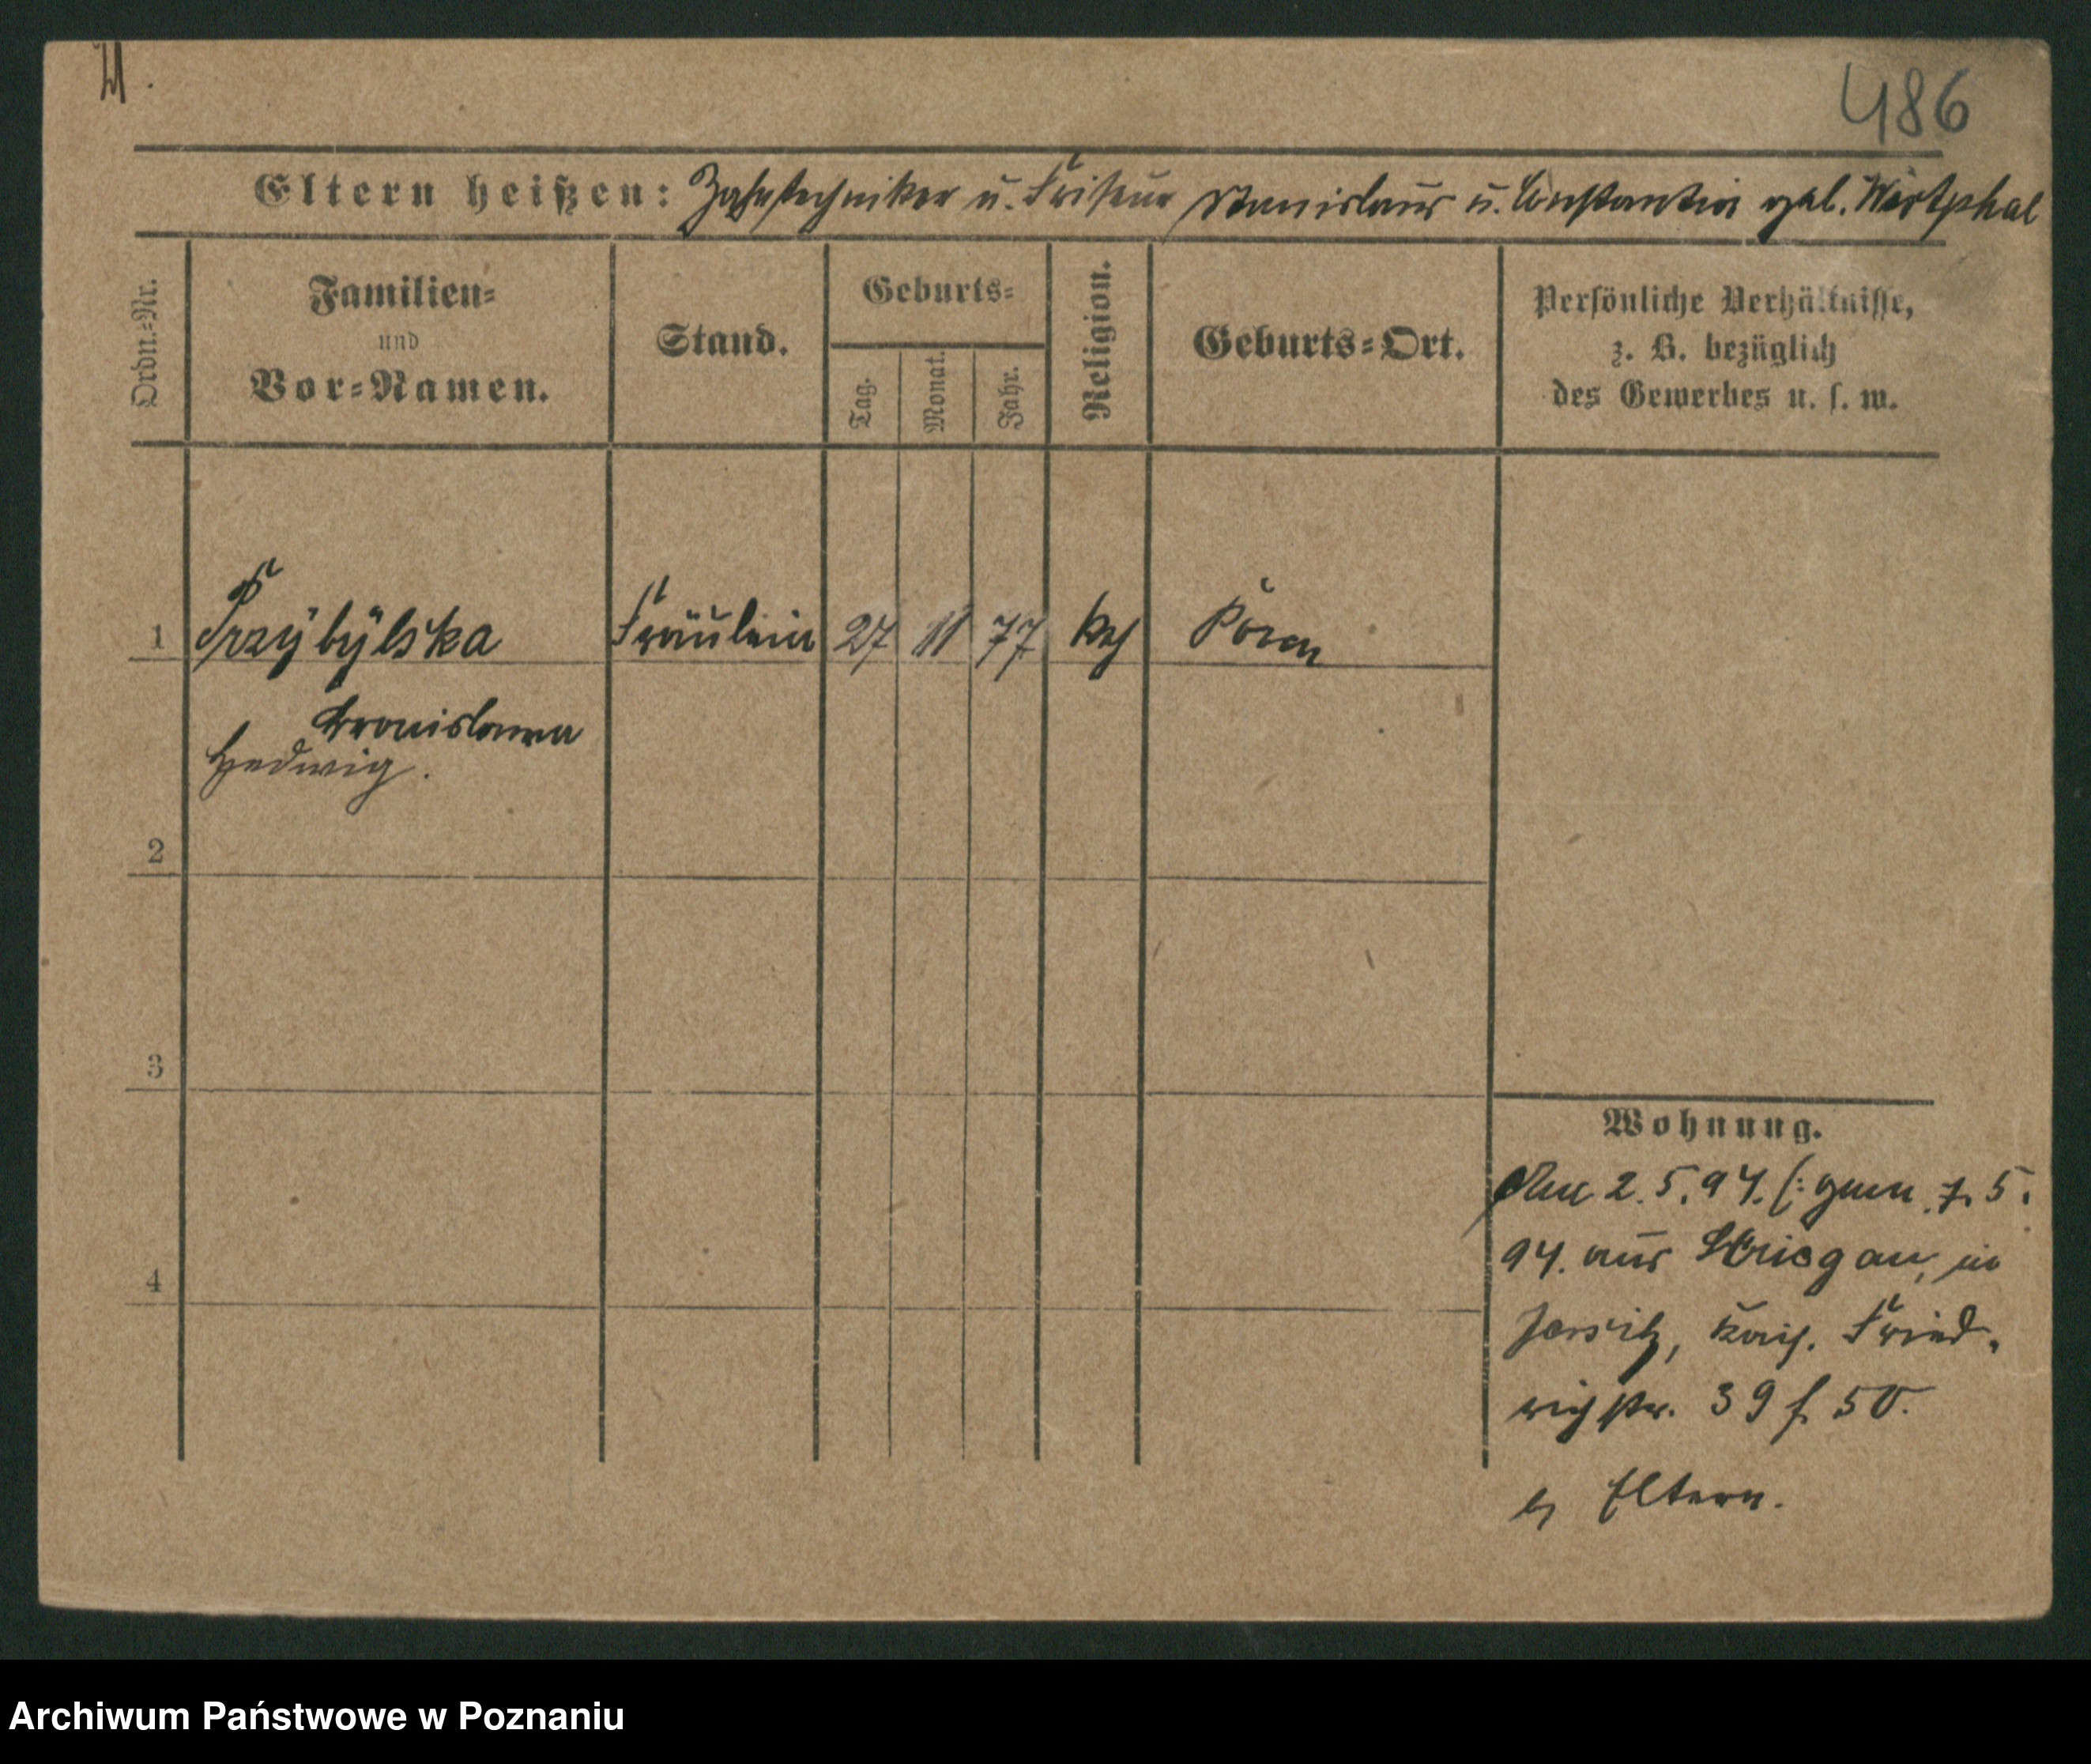 486
Eltern heißen: Zahntechniker u. Friseur Stanislaus u. Constantia geb. Westphal
Ordn.=Nr.
Familien=
und
Vor=Namen.
Stand.
Geburts=
Tag.
Monat.
Jahr.
Religion.
Geburts=Ort.
Persönliche Verhältnisse,
z. B. bezüglich
des Gewerbes u. s. w.
1 Przybylska Fräulein 27 11 77 kth Posen
Bronislawa
Hedwig.
2
3
4
Wohnung.
2.5.94. (: gem. 7.5.
94. aus Striegau, in
Jersitz, Kais. Fried=
richstr. 39 f. 50.
b/ Eltern.
Archiwum Państwowe w Poznaniu